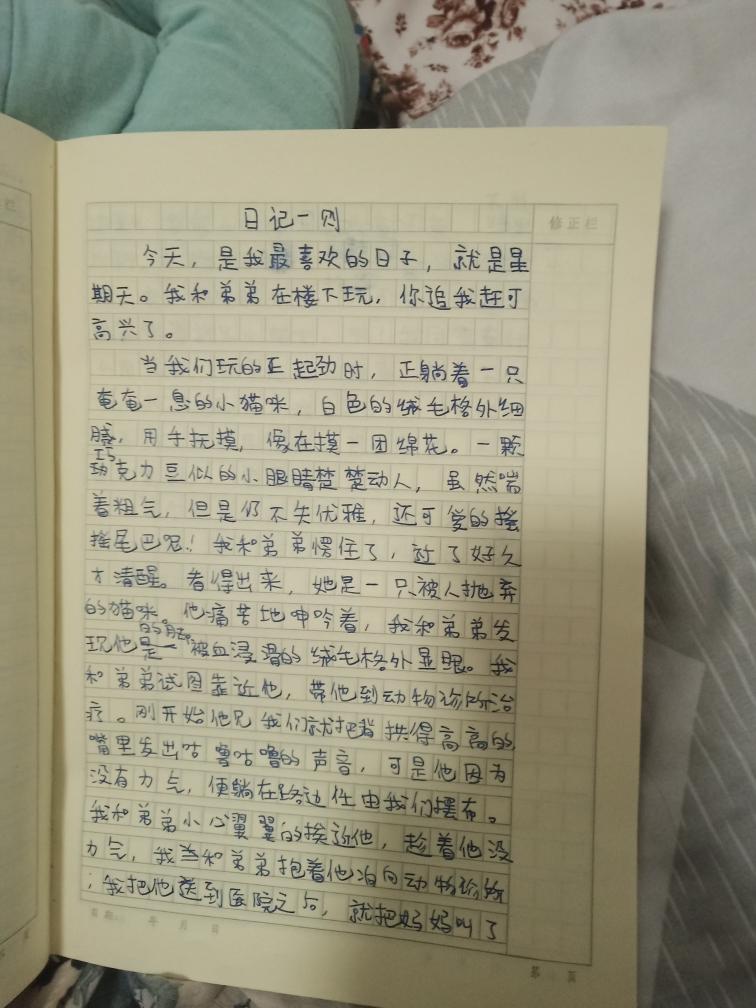 修正栏
日记一则
今天，是我最喜欢的日子，就是星
期天。我和弟弟在楼下玩，你追我赶可
高兴了。
当我们玩的正起劲时，正躺着一只
奄奄一息的小猫咪，白色的绒毛格外细
腻，用手抚摸，像在摸一团绵花。一颗
巧克力豆似的小眼睛楚楚动人，虽然喘
着粗气，但是仍不失优雅，还可爱的摇
摇尾巴呢！我和弟弟愣住了，过了好久
才清醒。看得出来，她是一只被人抛弃
的猫咪。他痛苦地呻吟着，我和弟弟发
现他是的脏。被血浸湿的绒毛格外显眼。我
和弟弟试图靠近他，带他到动物诊所治
疗。刚开始他见我们就把背拱得高高的
嘴里发出咕噜咕噜的声音，可是他因为
没有力气，便躺在路边任由我们摆布。
我和弟弟小心翼翼的挨近他，趁着他没
力气，我当和弟弟抱着他泊向动物诊所
；我把他送到医院之后，就把妈妈叫了
年 月 日
第 页